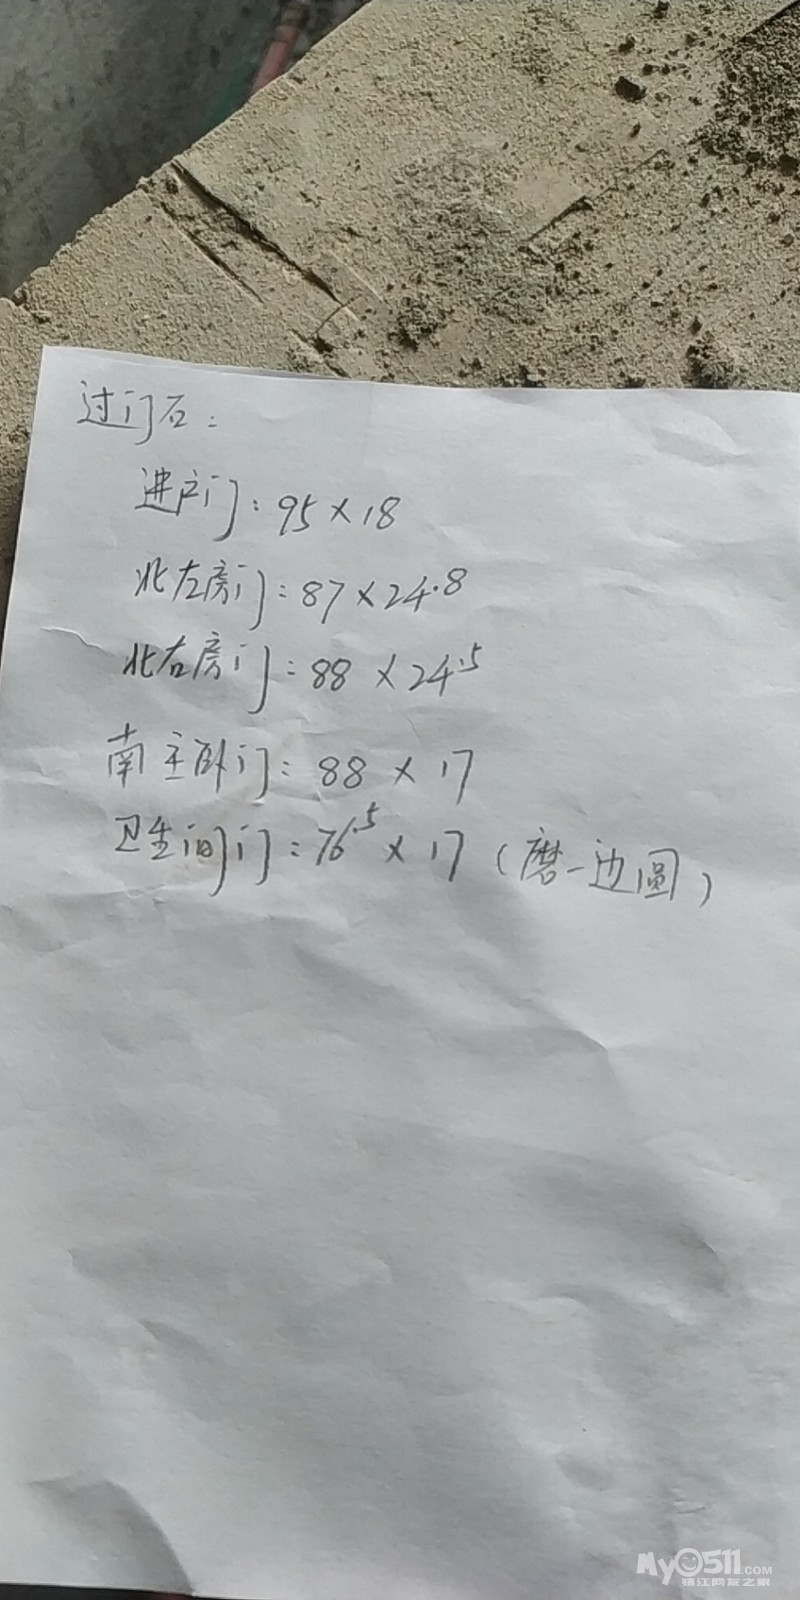 过门石：
进户门：95×18
北左房门：87×24.8
北右房门：88×24.5
南主卧门：88×17
卫生间门：76.5×17（磨一边圆）
My0511.COM
镇江网友之家